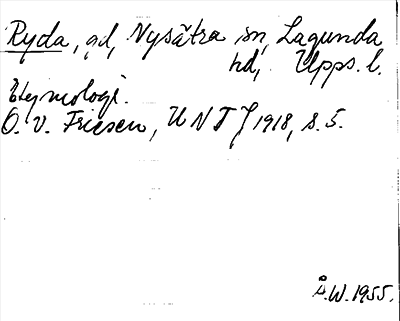 Ryda, gd, Nysätra sn, Lagunda
hd, Upps. l.
Etymologi.
O. v. Friesen, UNT J 1918, s. 5.
Å.W. 1955.